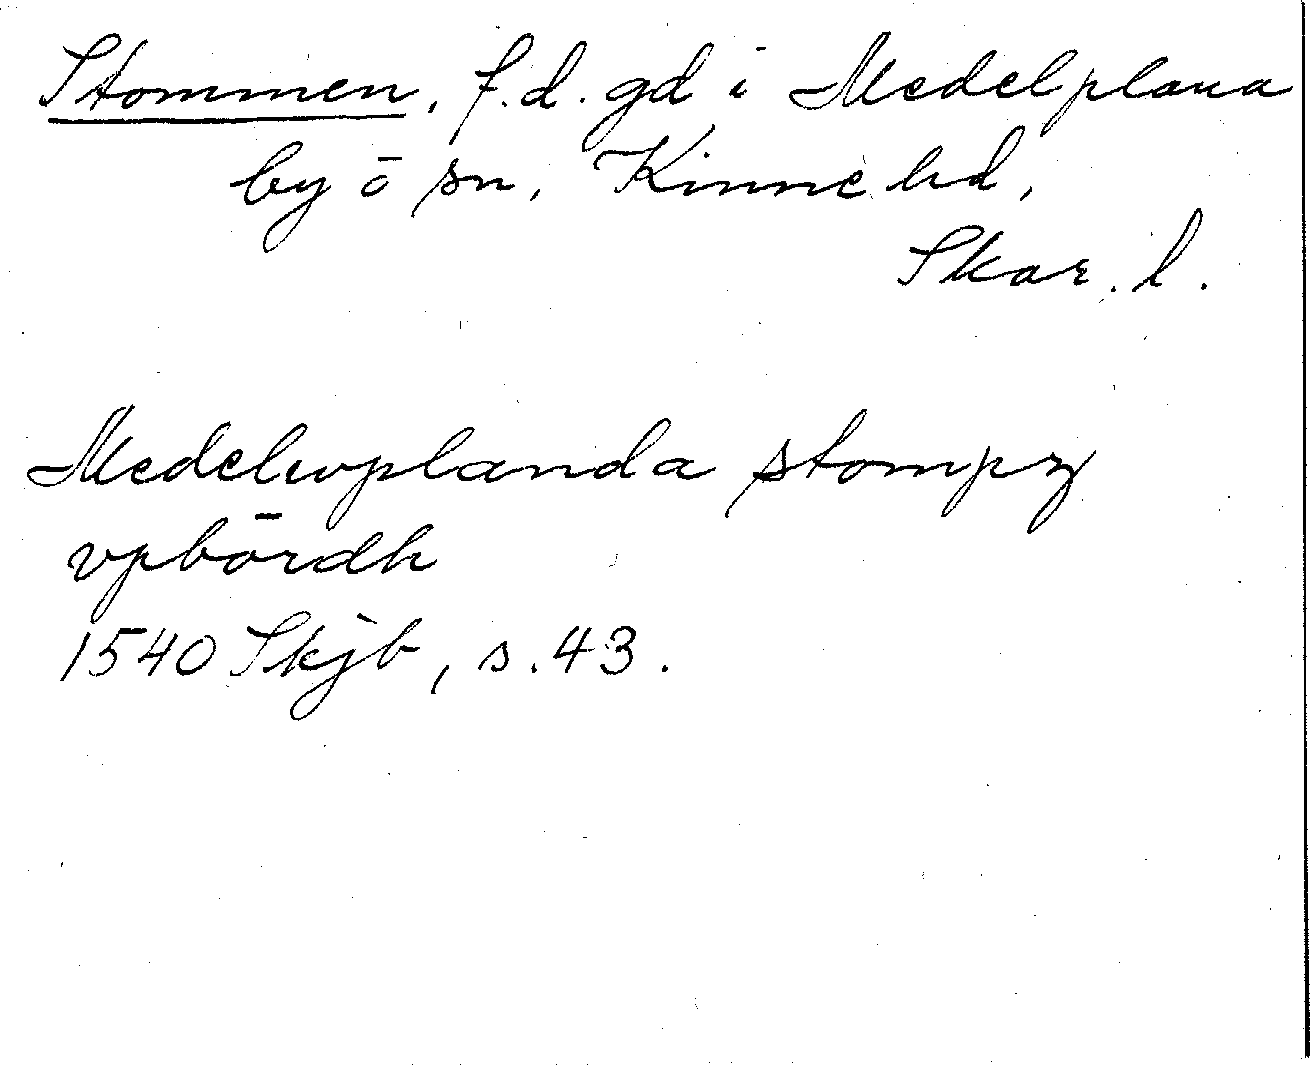 Stommen, f.d. gd i Medelplana
by o sn, Kinne hd,
Skar. l.
Medelwplanda stompz
vpbördh
1540 Skjb, s. 43.